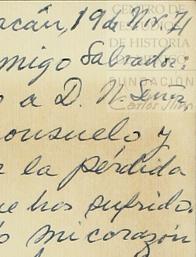 acán, 19 de Nov. 71
amigo Salvador:
o a D. N. Señor
onsuelo y
r la pérdida
ue has sufrido.
mi corazón
DE HISTORIA
FUNDACIÓN
Carlos Slim